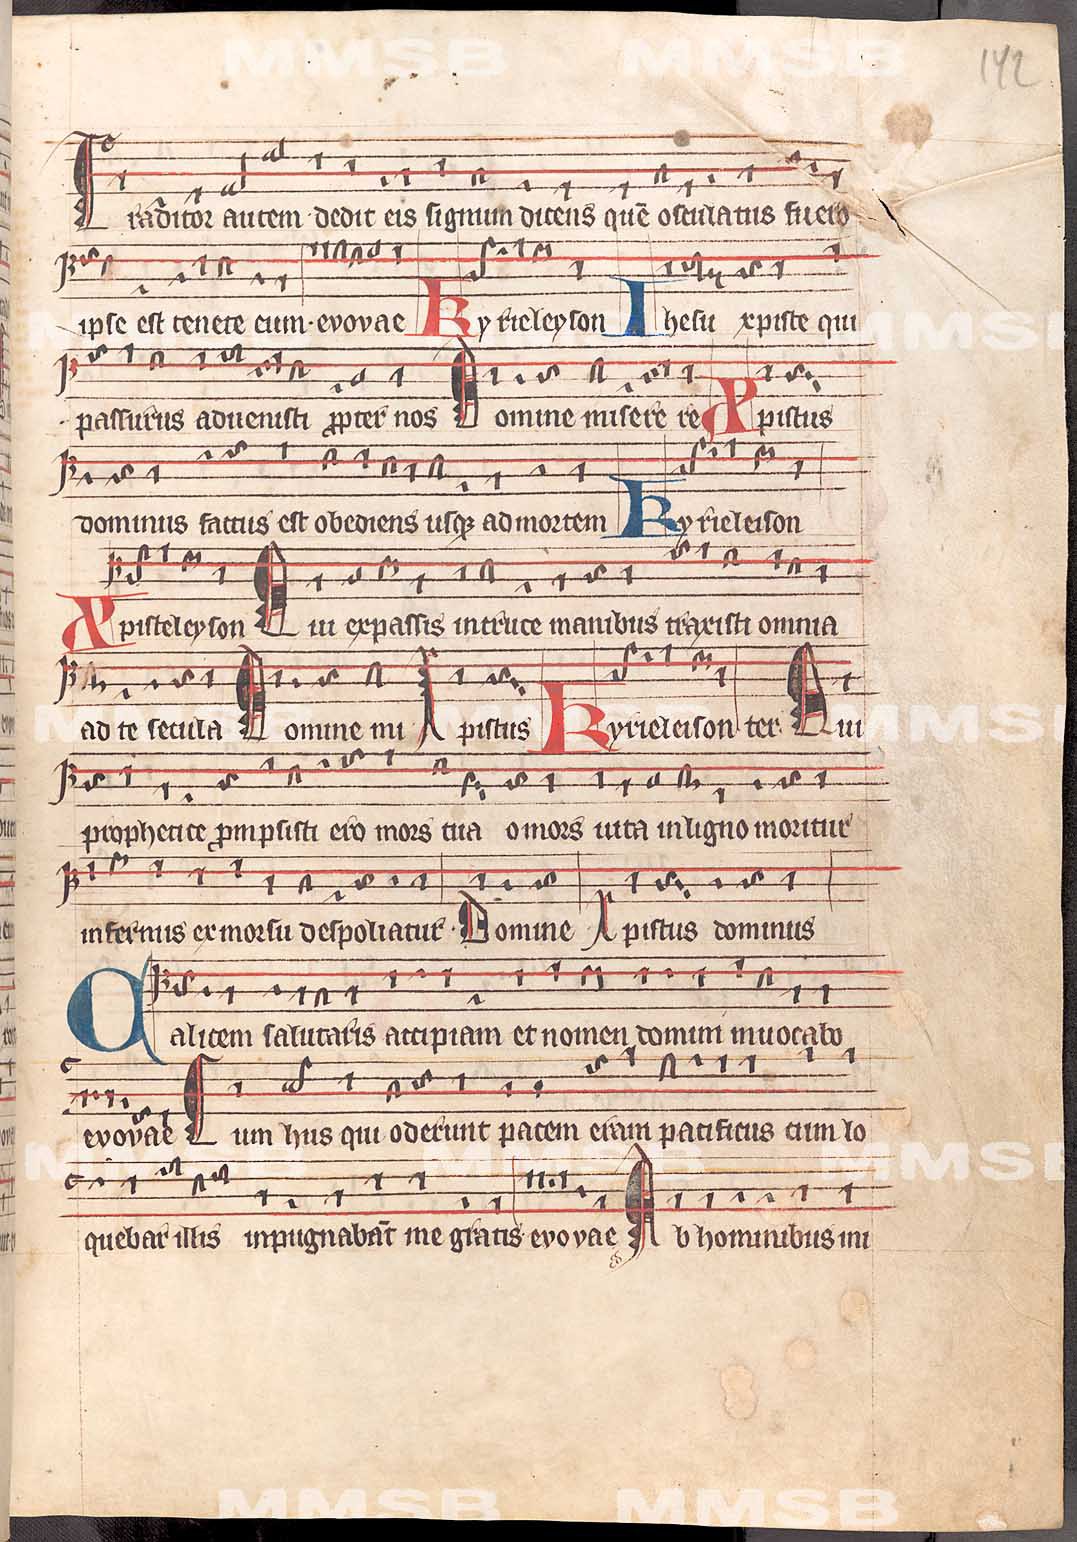 142
Traditor autem dedit eis signum dicens quē osculatus fuero
ipse est tenete eum · evovae Kyrieleyson Ihesu xpiste qui
passurus aduenisti ꝓpter nos Domine miserere Xpistus
dominus factus est obediens usqꝫ ad mortem Kyrieleison
Xpisteleyson Qui expassis in cruce manibus traxisti omnia
ad te secula Domine mi Xpistus Kyrieleison ter · Qui
prophetice ꝓmpsisti ero mors tua o mors uita in ligno moritur
infernus ex morsu despoliatur · Domine Xpistus dominus
Calicem salutaris accipiam et nomen domini inuocabo
evovae Cum hiis qui oderunt pacem eram pacificus cum lo
quebar illis inpugnabāt me gratis evovae Ab hominibus ini
MMSB